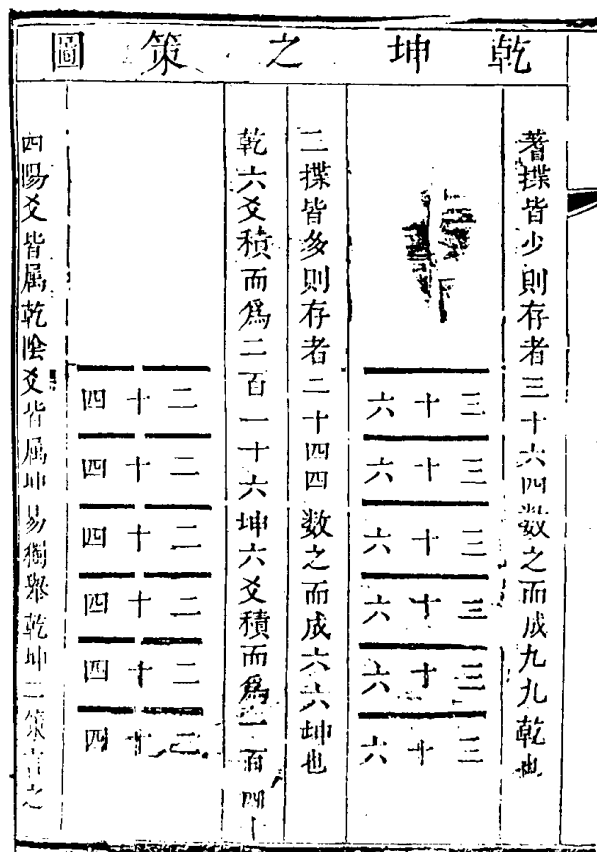 乾坤之策圖
蓍揲皆少則存者三十六四數之而成九九乾也
三十六
三十六
三十六
三十六
三十六
三十六
二揲皆多則存者二十四四數之而成六六坤也
乾六爻積而爲二百一十六坤六爻積而爲一百四十
二十四
二十四
二十四
二十四
二十四
二十四
四陽爻皆属乾陰爻皆属坤易獨舉乾坤二策言之